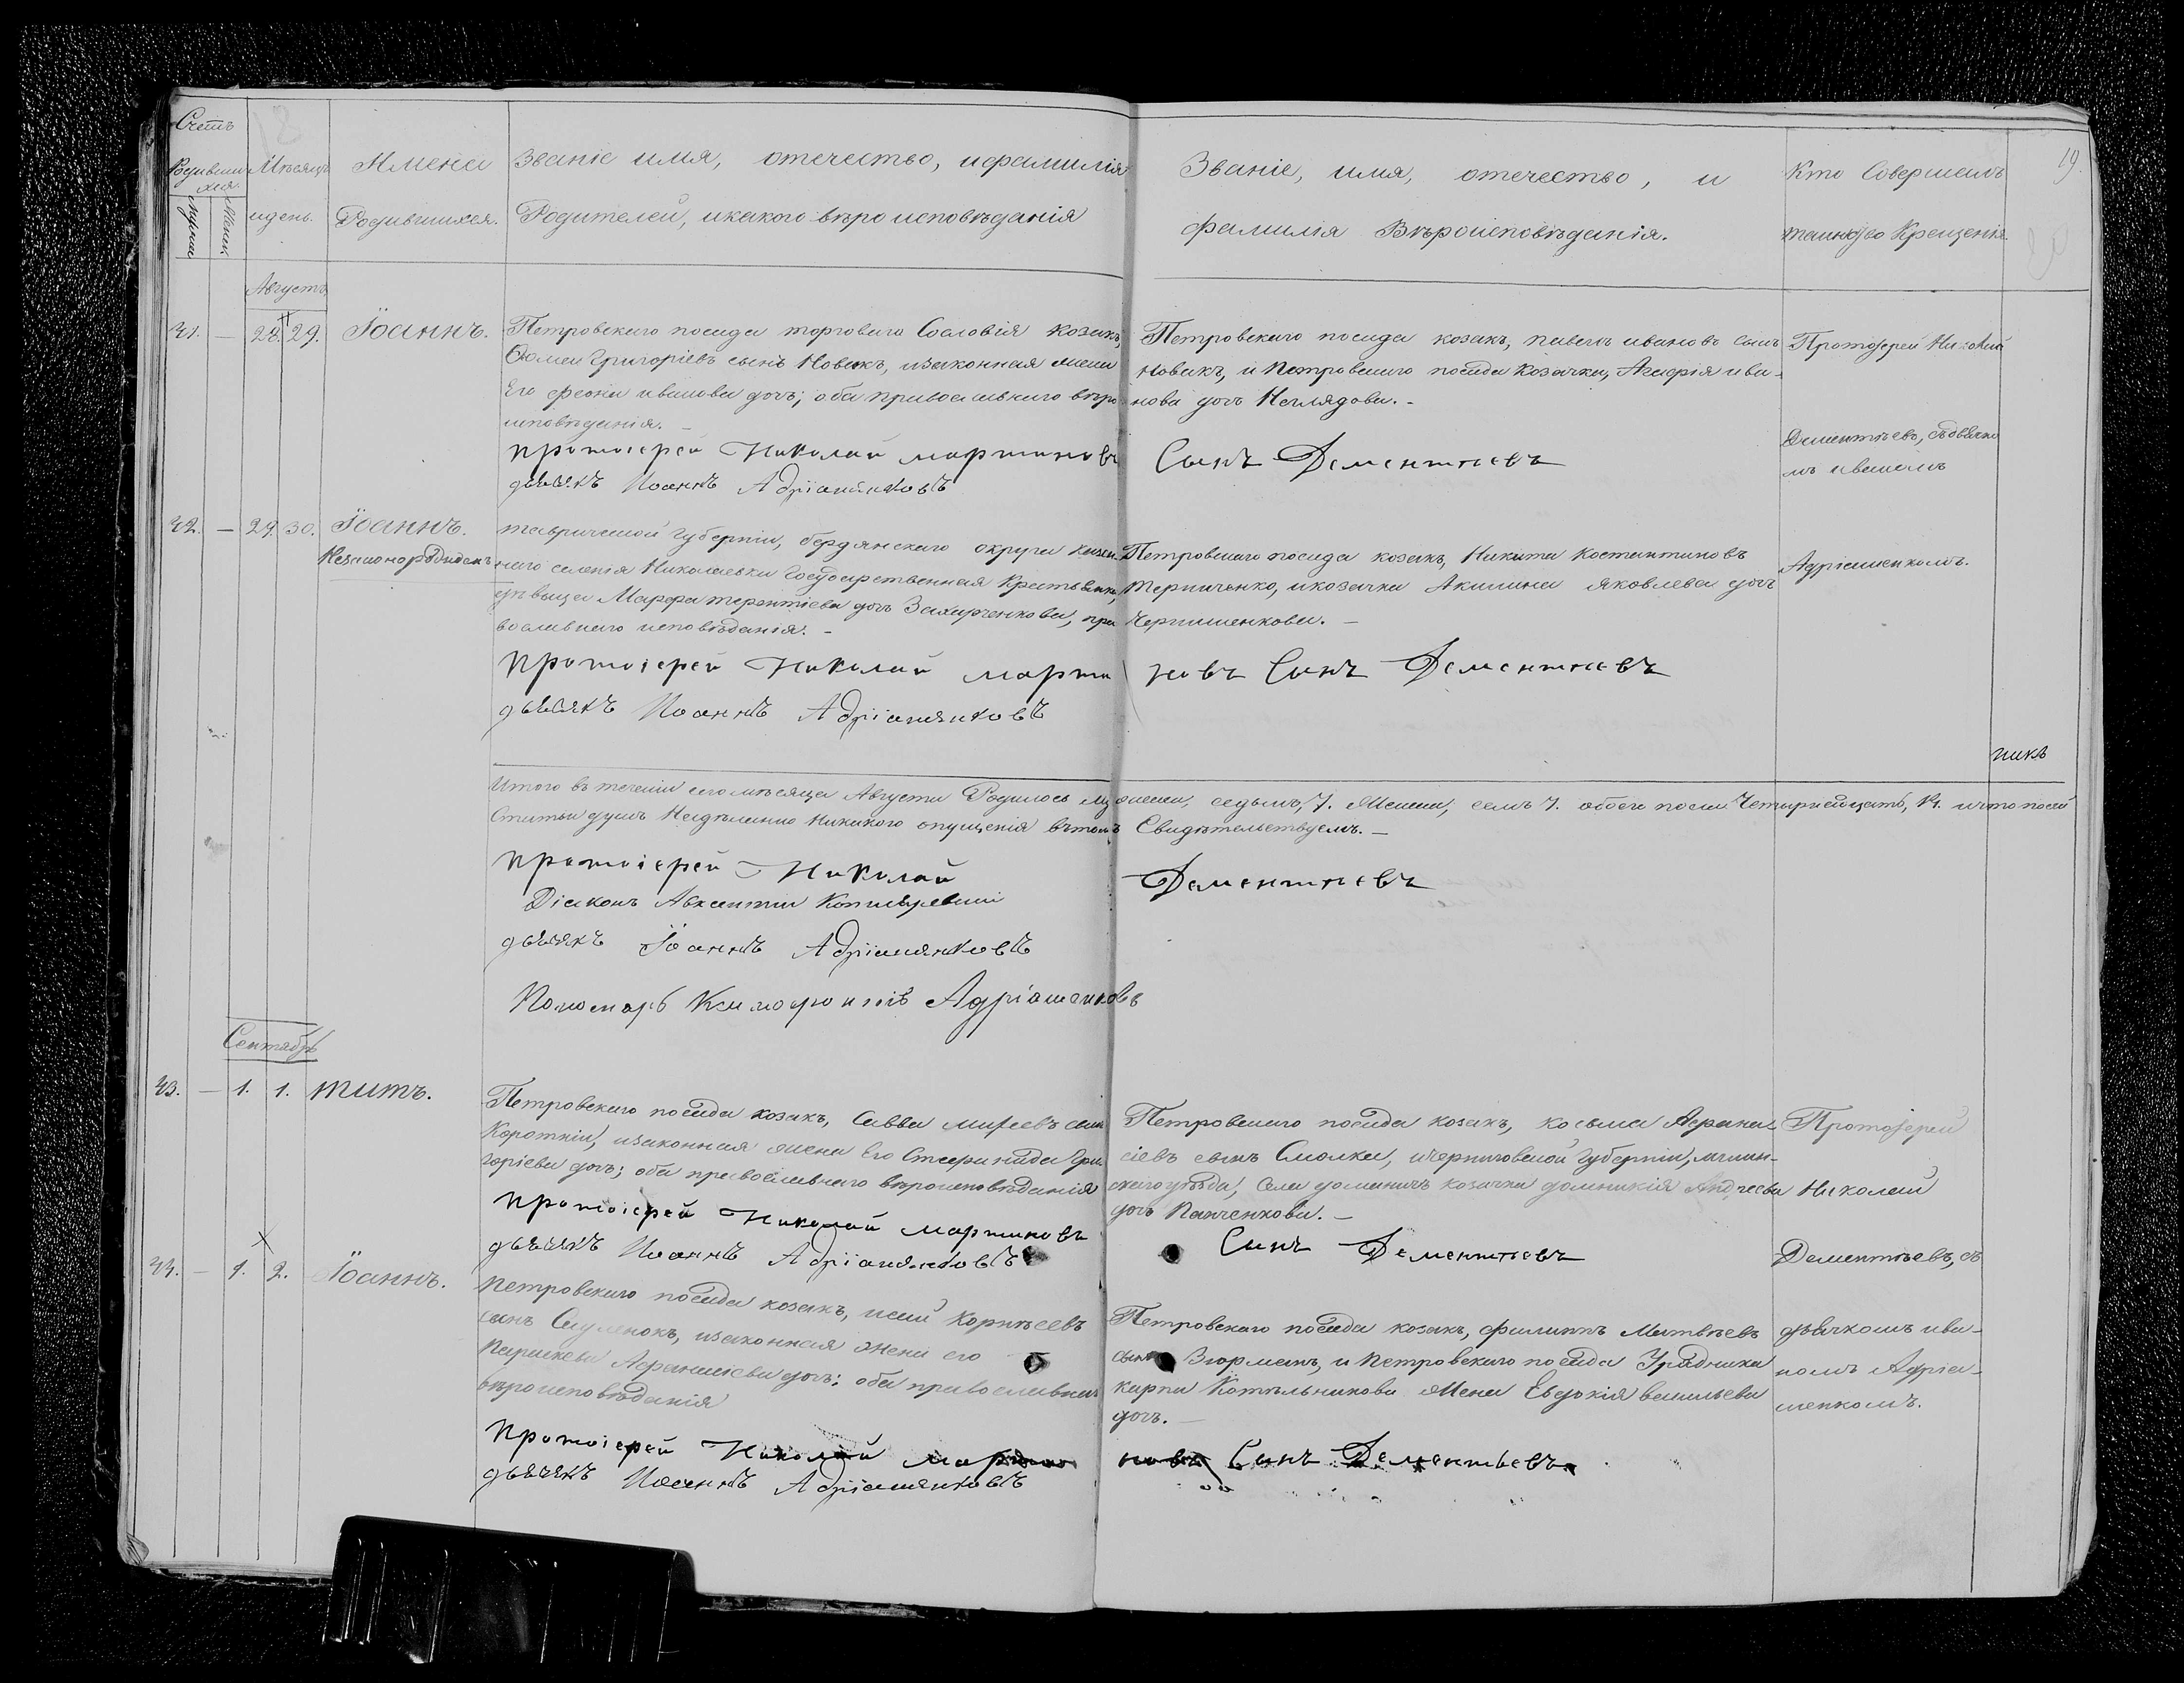 Счетъ
Родивши
хся.
Мужска
Женск
Мѣсяцъ
и день.
Имена
Родившихся.
Званіе имя, отечество, и фамилія
Родителей, и какого вѣроисповѣданія
Званіе, имя, отечество, и
фамилія Вѣроисповѣданія.
Кто Совершилъ
таинство Крещенія
19
Августъ
41. — 28. 29. Іоаннъ.
Петровскаго посада торговаго Сословія козакъ,
Фома Григоріевъ сынъ Новакъ, изаконная жена
Его феона иванова дочь; оба православнаго вѣро
исповѣданія. —
протоіерей Николай мартиновъ
дьячекъ Иоаннъ Адріяшенковъ
Петровскаго посада козакъ, павелъ ивановъ сынъ
Новакъ, и Петровскаго посада Козачка, Агафія ива-
нова дочь Неглядова. -
Сынъ Дементіевъ
Протоіерей Николай
Дементіевъ, съ дьячко
мъ иваномъ
Адріашенкомъ.
42. — 29. 30. Іоаннъ.
Незаконорожденъ
таврической Губерніи, бердянскаго округа казен
наго селенія Николаевки Государственная Крестьянка,
дѣвица Марфа терентіева дочь Захарченкова, пра
вославнаго исповѣданія. -
протоіерей Николай марти
новъ Сынъ Дементіевъ
дьячекъ Иоаннъ Адріяшенковъ
Петровскаго посада козакъ, Никита Костантиновъ
, и козачка Акилина яковлева дочь
. —
никъ
Итого въ теченіи сего мѣсяца Августа Родилось мужеска, седьмъ, 7. Женска, семь 7. обоего пола Четырнадцать, 14. и что посей
Статьи душъ Несдѣланно Никакого опущенія вътомъ Свидѣтельствуемъ. —
протоіерей Николай
Дементіевъ
Діаконъ Авксентій
дьячекъ Іоаннъ Адріяшенковъ
Пономарь Ксенофонтій Адріашенковъ
Сентябрь
43. — 1. 1. титъ.
Петровскаго посада козакъ, Савва сынъ
Короткій, изаконная жена Его Стефанида Гри
горіева дочь; оба православнаго вѣроисповѣданія
протоіерей Николай мартиновъ
дьячекъ Иоаннъ Адріяшенковъ
Петровскаго посада козакъ, косьма Афана-
сіевъ сынъ Смолка, ичерниговской Губерніи, мглин-
скаго уѣзда, Села козачка домникія Андреева
дочь Панченкова. —
Сынъ Дементіевъ
Протоіерей
Николай
Дементіевъ, съ
дьячкомъ ива-
номъ Адріа-
шенкомъ.
44. — 1. 2. Іоаннъ.
Петровскаго посада козакъ, исай Корнѣевъ
сынъ , изаконная жена его
Параскева Афанасіева дочь; оба православнаго
вѣроисповѣданія
протоіерей Николай марти
новъ Сынъ Дементьевъ
дьячекъ Иоаннъ Адріяшенковъ
Петровскаго посада козакъ, филиппъ Матвѣевъ
сынъ , и Петровскаго посада Урядника
карпа Котельникова Жена Евдокія васильева
дочь. —